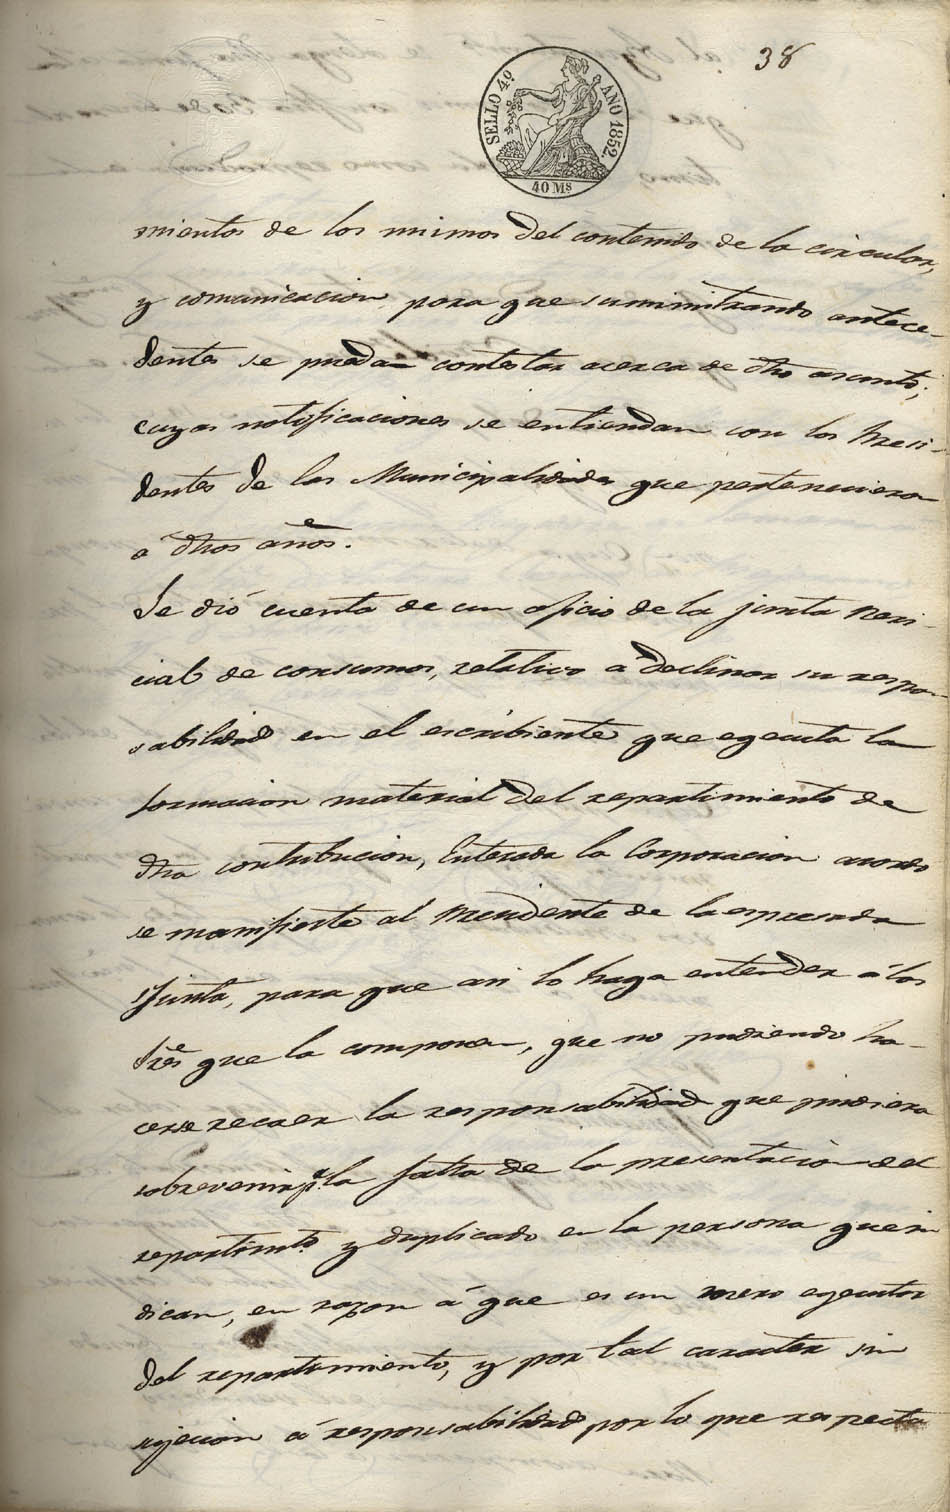 38
SELLO 4º AÑO 1852.
40 Ms
mientos de los mimos del contenido de la circular,
y comunicacion para que suministrando antece-
dentes se pueda contestar acerca de dho asunto;
cuyas notificaciones se entiendan con los Presi-
dentes de las Municipalidades que pertenecieron
a dhos años.
Se dió cuenta de un oficio de la junta Peri-
cial de consumos, relativo a declinar su respon-
sabilidad en el escribiente que egecuta la
formacion material del repartimiento de
dha contribucion, Enterada la Corporacion acordó
se manifieste al Presidente de la espresada
Junta, para que asi lo haga entender á los
Sres que la componen, que no pudiendo ha-
cerse recaer la responsabilidad que pudiera
sobrevenir pr. la falta de la presentacion del
repartimto. y duplicado en la persona que in
dican, en razon á que es un mero egecutor
del repartimiento, y por tal caracter sin
sugecion á responsabilidad por lo que respecta